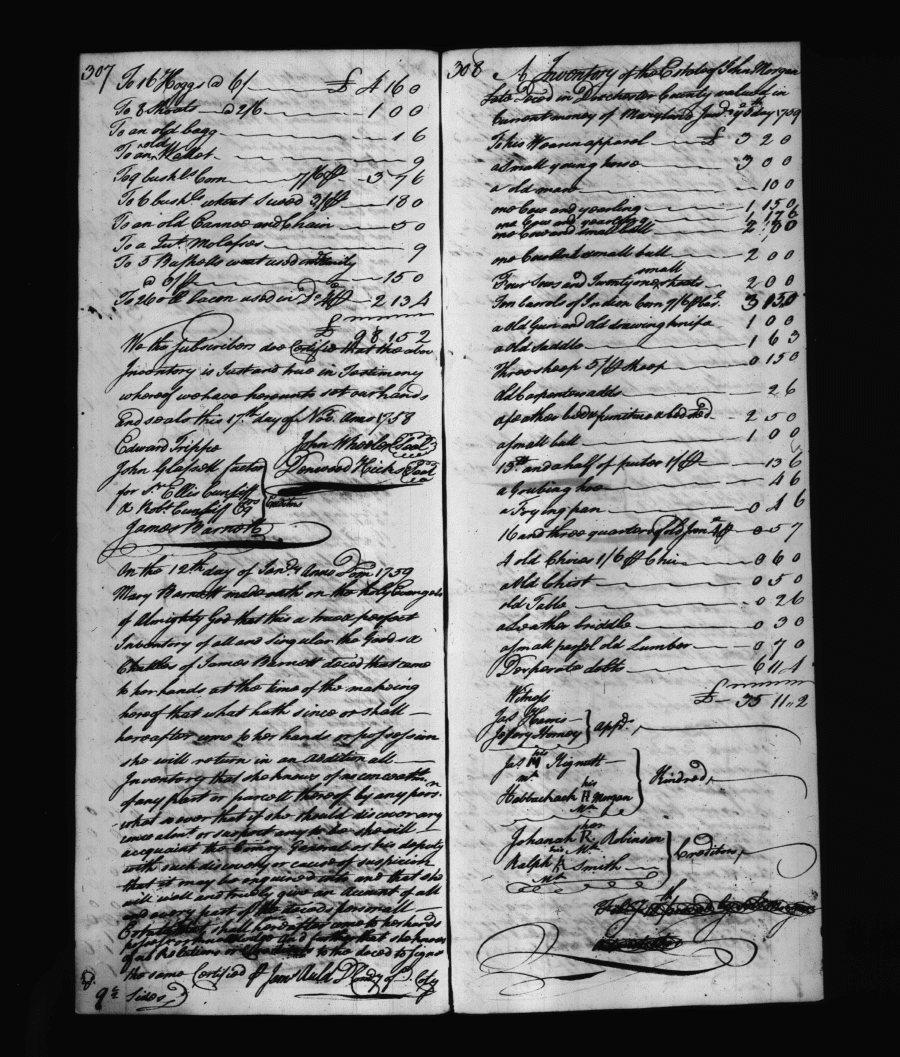 307
To 16 Hoggs @ 6/ £ 4 16 0
To 8 Shoats @ 2/6 1 0 0
To an old bagg 1 6
To an old Wallet 9
To 9 bushls Corn 7/6 3 7 6
To 6 bushls wheat used 3/ 18 0
To an old Cannoe and Chain 5 0
To a Qut. Molasses 9
To 5 Bushels wheat used in family
@ 3/ 15 0
To 260 lb bacon used in Do 2 13 4
£ 98 15 2
We the Subscribers doe Certifie that the above
Inventory is Just and true in Testimony
whereof we have hereunto set our hands
and seals this 17th day of Nov. Anno 1758
Edward Trippe John Wheeler Seal
John Glasock factor Denwood Hicks Seal
for Sr. Ellis Cunliff
& Robt Cunliff Esqrs Creditors
James Barnett
On the 12th day of Jany Anno Dom 1759
Mary Barnett made oath on the holy Evangels
of Almighty God that this is a true perfect
Inventory of all and singular the Goods &
Chattles of James Barnett deced that came
to her hands at the time of the makeing
hereof that what hath since or shall
hereafter come to her hands or possession
she will return in an additional
Inventory that she knows of no concealmt
of any part or parcell thereof by any person
whatsoever that if she should discover any
concealmt or suspect any to be she will
acquaint the Comry General or his deputy
with such discovery or cause of suspicion
that it may be enquired into and that she
will well and truly give an Account of all
and every part of the deced personall
Estate that shall hereafter come to her hands
possession and that she knows
of no Relations to the deced to signe
the same Certified Jno Auld D Comry of D. Coty
9 Sides
308
A Inventory of the Estate of John Morgan
Late Deced in Dorchester County valued in
Current money of Maryland Jany 29th day 1759
To his Wearing apparel £ 3 2 0
a small young horse 3 0 0
a old mare 10 0
one Cow and yearling 1 15 0
one Cow and yearling 1 17 6
one Cow and small bull 2 0 0
one Cow and small bull 2 0 0
Four Sows and Twenty one small shoats 2 0 0
Ten barrels of Indian Corn 7/6 3 15 0
a old Gun and old drawing knife 1 0 0
a old Saddle 1 6 3
Three sheep 5/ sheep 0 15 0
old Carpenters adds 2 6
a feather bed & furniture & bedsted 2 5 0
a small bell 1 0 0
13lb and a half of puter 1/ 13 6
a Grubing hoe 4 6
a Frying pan 0 4 6
16 and three quarters of old Iron 4d 0 5 7
4 old Chires 1/6 Chir 0 6 0
a Old Chist 0 5 0
old Table 0 2 6
a Leather briddle 0 3 0
a small parsel old Lumber 0 7 0
Desperate debts 6 11 4
£ 35 11 2
Witness
Jas Harris
Jefery Horney } Appr.
Jas Hignett
mk
his
Habbachach H Morgan } Kindred,
Mk
her
Johanah R. Robinson
his Mk
Ralph R Smith } Creditors,
Mk